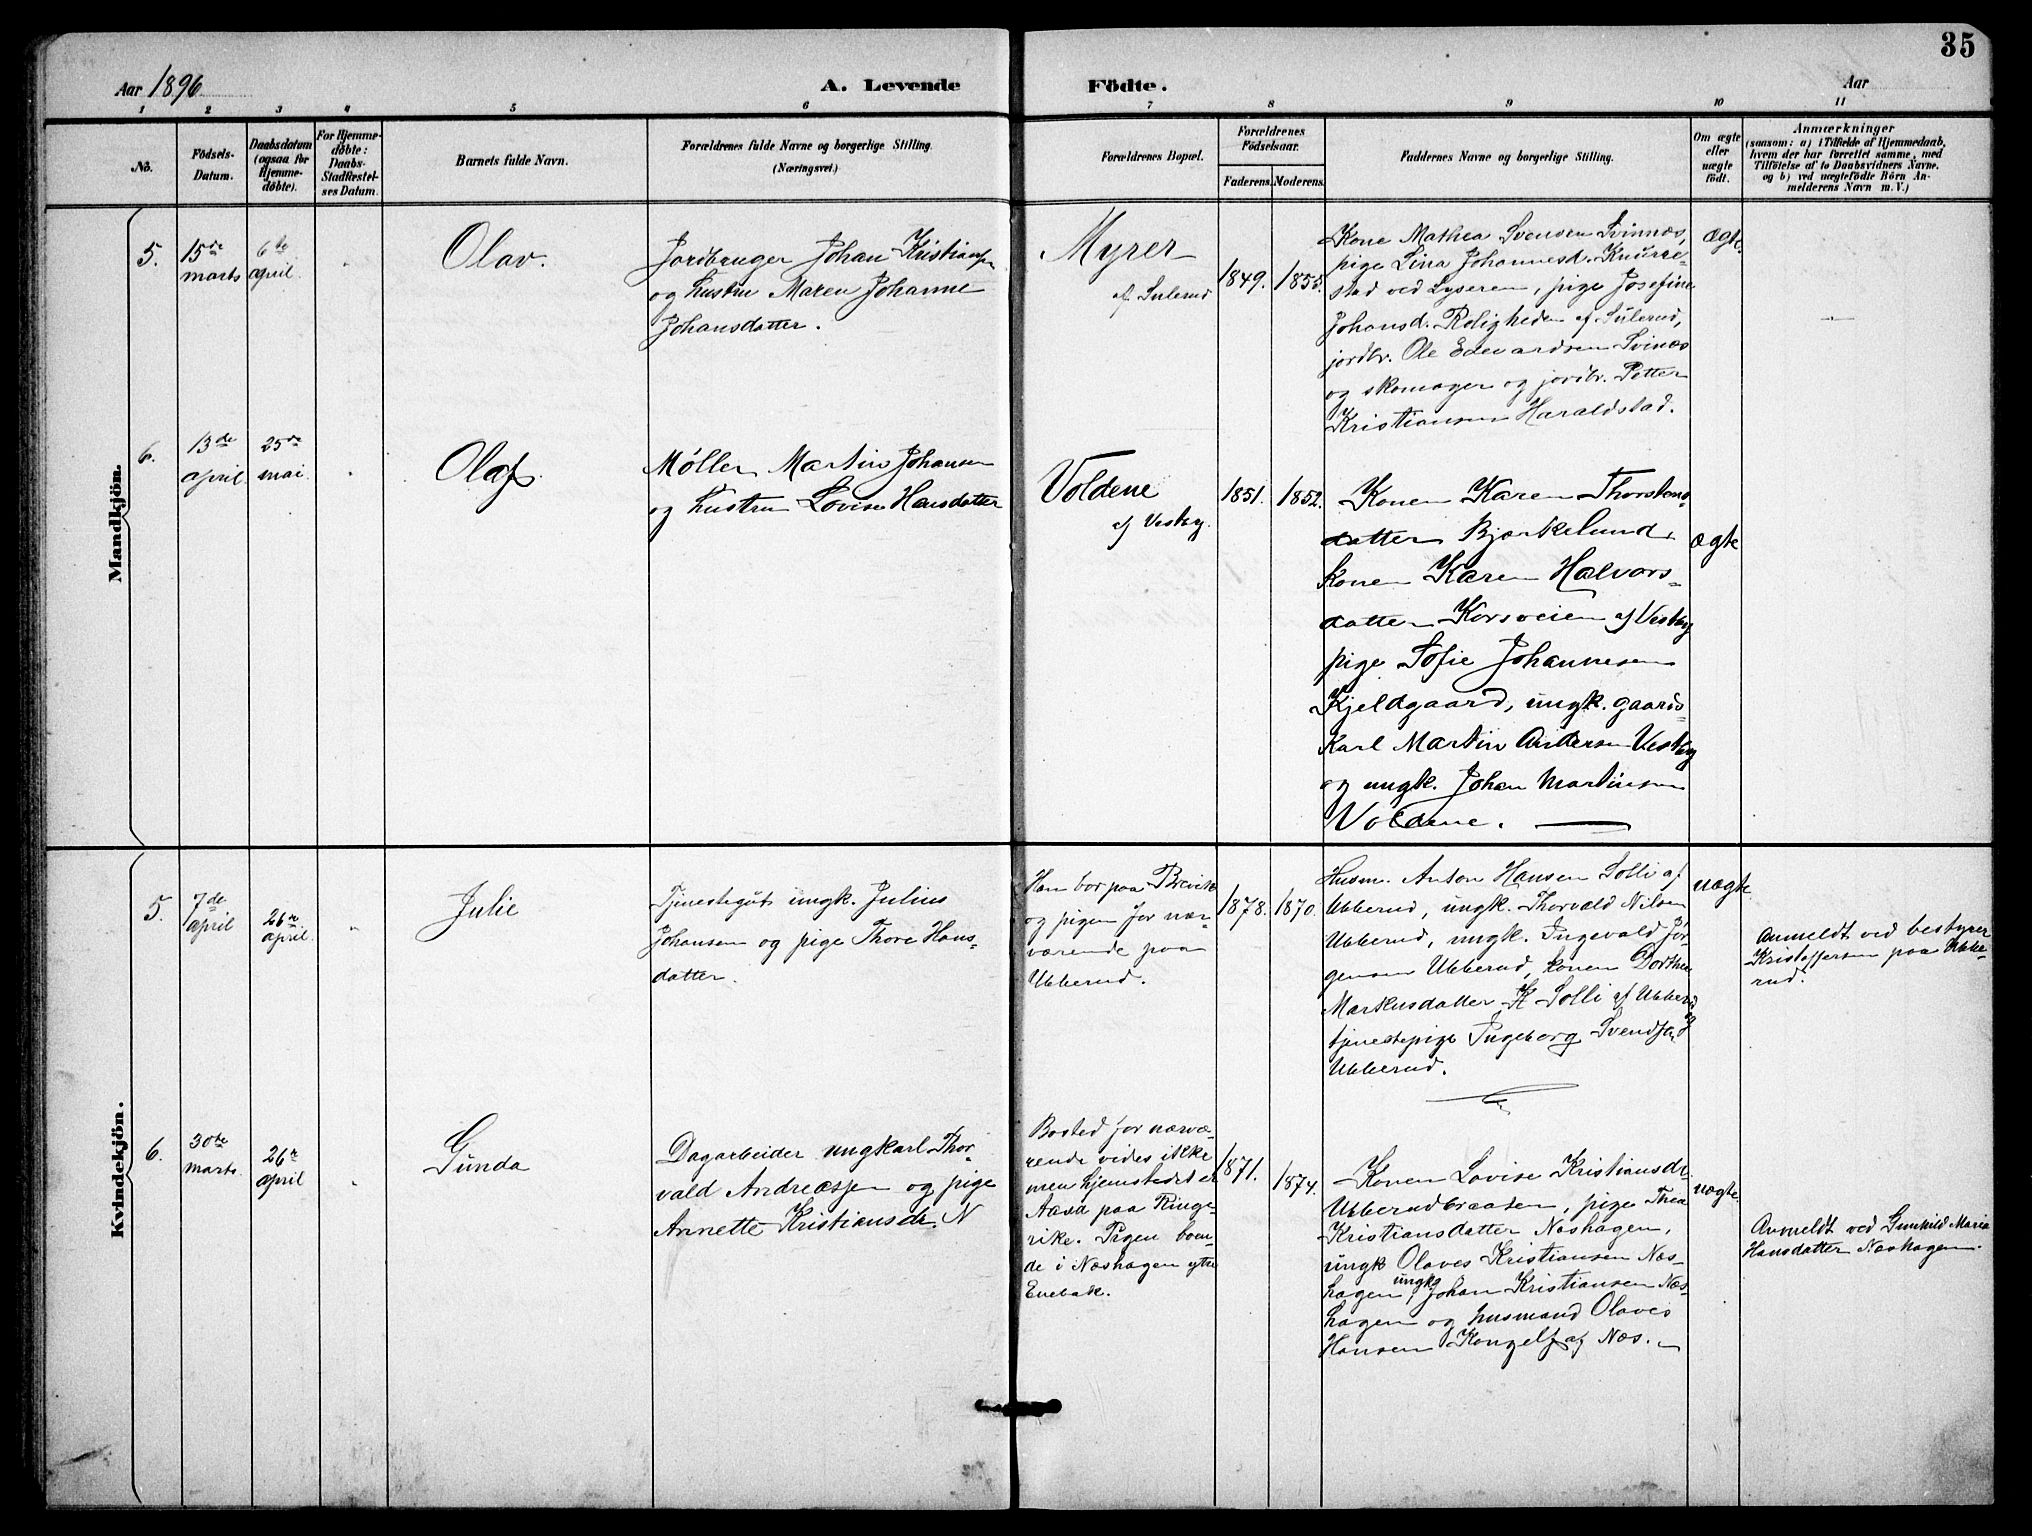 35
Aar 1896
A. Levende Födte.
Aar
1 2 3 4 5 6 7 8 9 10 11
No.
Födsels-
Datum.
Daabsdatum
(ogsaa for
Hjemme-
döbte).
For Hjemme-
döbte:
Daabs-
Stadfæstel-
ses Datum.
Barnets fulde Navn.
Forældrenes fulde Navne og borgerlige Stilling.
(Næringsvei.)
Forældrenes Bopæl.
Forældrenes
Födselsaar.
Faderens. Moderens.
Faddernes Navne og borgerlige Stilling.
Om ægte
eller
uægte
födt.
Anmærkninger
(saasom: a) i Tilfælde af Hjemmedaab,
hvem der har forrettet samme, med
Tilföielse af to Daabsvidners Navne.
og b) ved uægtefödte Börn An-
melderens Navn m. V.)
Mandkjön.
5.
15de
marts
6te
april.
Olav.
Jordbruger Johan Kristians.
og hustru Maren Johanne
Johansdatter.
Myrer
af Sulerud
1849.
1855.
Kone Mathea Svensen Svinnæs,
pige Lina Johannesd. Knurre-
stad ved Lyseren, pige Josefine
Johansd. Roligheden af Sulerud,
jordbr. Ole Edevardsen Svinæs
og skomager og jordbr. Petter
Kristiansen Haraldstad.
ægte.
6.
13de
april.
25de
mai.
Olaf.
Møller Martin Johansen
og hustru Lovise Hansdatter
Voldene
af Vestby.
1851.
1852.
Konen Karen Thorstens-
datter Bjørkelund,
konen Karen Halvors-
datter Korsveien af Vestby
pige Sofie Johannesen
Kjeldgaard, ungk. gaards-
karl Martin Andersen Vestby
og ungk. Johan Martinsen
Voldene.
ægte
Kvindekjön.
5.
7de
april
26de
april.
Julie
Tjenestegut ungk. Julius
Johansen og pige Thora Hans-
datter.
Han bor paa
og pigen for nær-
værende paa
Ubberud.
1878.
1870.
Husm. Anton Hansen Solli af
Ubberud, ungk. Thorvald Nilsen
Ubberud, ungk. Ingevald Jør-
gensen Ubberud, konen Dorthea
Markusdatter Solli af Ubberud
og
tjenestepige Ingeborg
Ubberud.
uægte
Anmeldt ved bestyrer
Kristoffersen paa Ubbe-
rud.
6.
30te
marts.
26de
april
Gunda
Dagarbeider ungkarl Thor-
vald Andreassen og pige
Annette Kristiansdr. N
Bosted for nærvæ-
rende vides ikke
men hjemstedet er
Aasa paa Ringe-
rike. Pigen boen-
de i Næshagen ytre
Enebak.
1871.
1874.
Konen Lovise Kristiansdr.
Ubberudbraaten, pige Thea
Kristiansdatter Næshagen,
ungk Olaves Kristiansen Næs-
hagen, ungk. Johan Kristiansen Næs-
hagen og husmand Olaves
Hansen Kongelf af Næs.
uægte
Anmeldt ved Gunhild Maria
Hansdatter Næshagen.